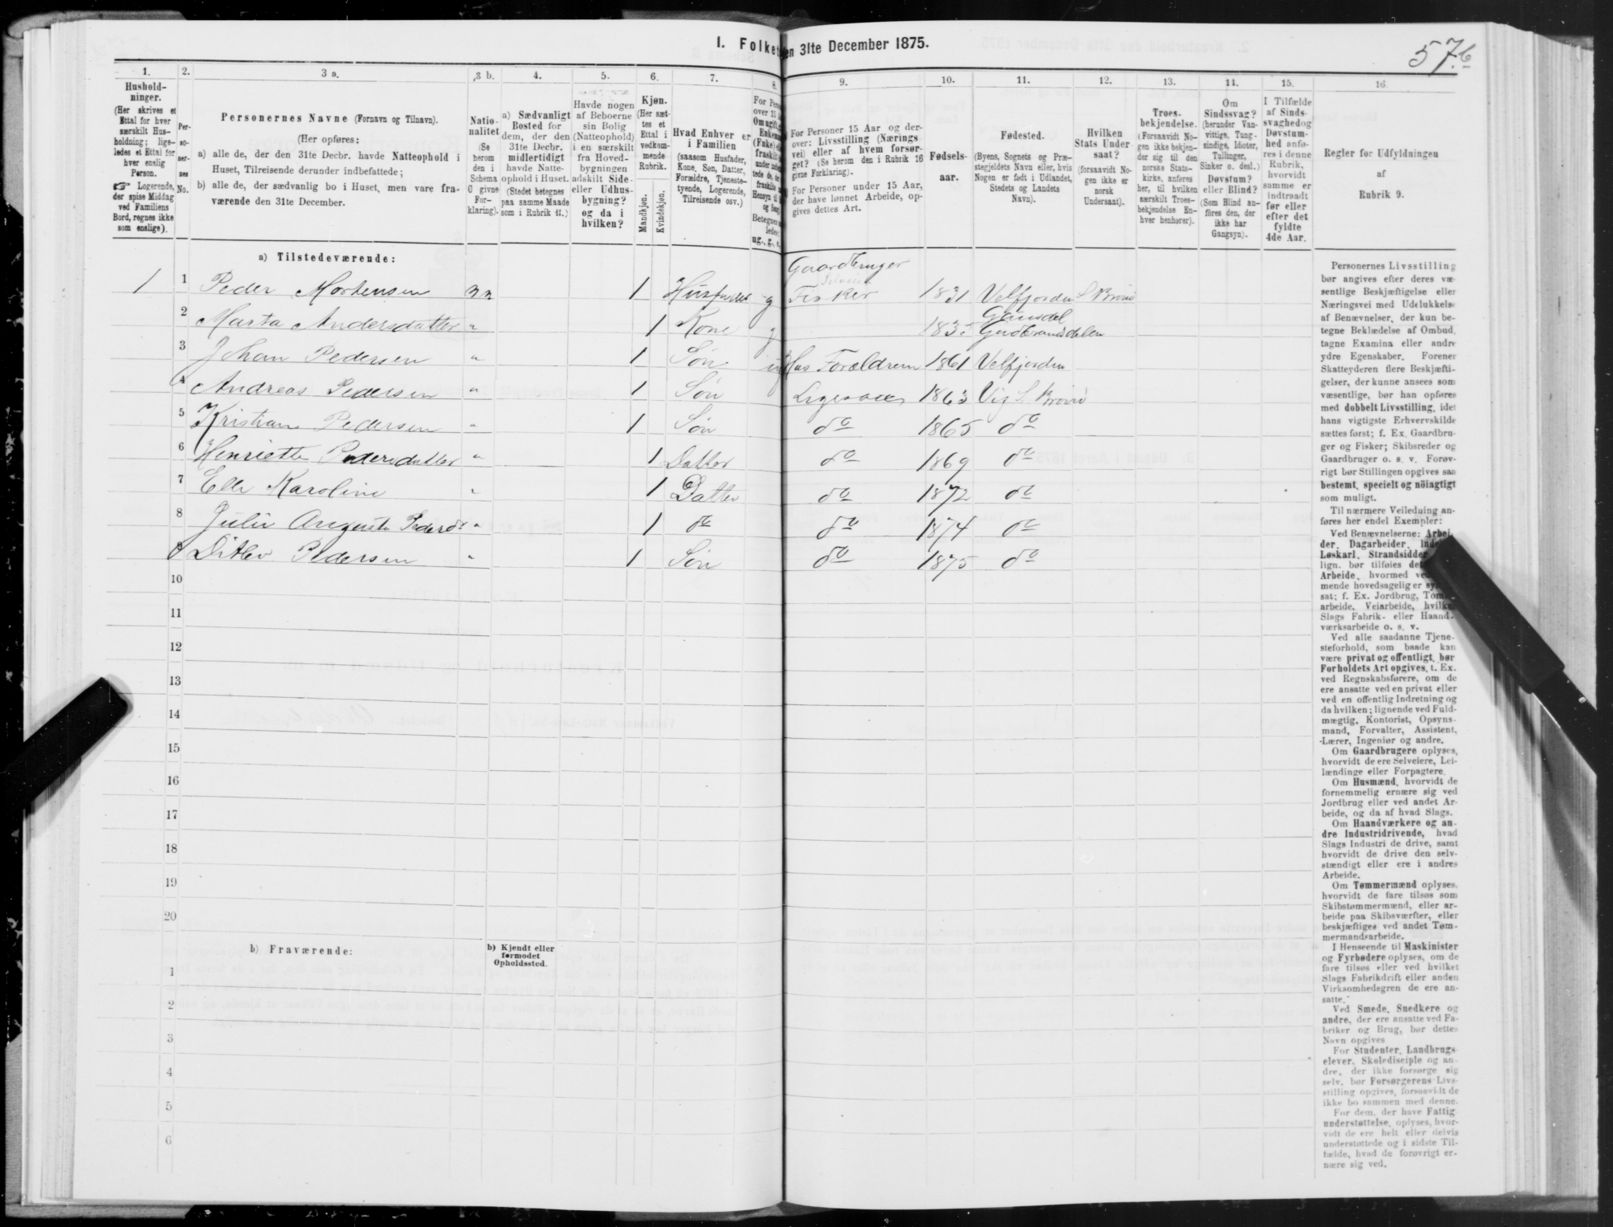 I. Folke
en 31te December 1875.
57.b
1.
Hushold-
ninger.
(Her skrives et
Ettal for hver
særskilt Hus-
holdning; lige-
ledes et Ettal for
hver enslig
Person.
Logerende,
der spise Middag
ved Familiens
Bord, regnes ikke
som enslige).
2.
Per-
so-
ner-
nes
No.
3 a.
Personernes Navne (Fornavn og Tilnavn).
(Her opføres:
a) alle de, der den 31te Decbr. havde Natteophold i
Huset, Tilreisende derunder indbefattede;
b) alle de, der sædvanlig bo i Huset, men vare fra-
værende den 31te December.
3 b.
Natio-
nalitet
(Se
herom
den i
Schema
O givne
For-
klaring).
4.
a) Sædvanligt
Bosted for
dem, der den
31te Decbr.
midlertidigt
havde Natte-
ophold i Huset.
(Stedet betegnes
paa samme Maade
som i Rubrik 11.)
5.
Havde nogen
af Beboerne
sin Bolig
(Natteophold)
i en særskilt
fra Hoved-
bygningen
adskilt Side-
eller Udhus-
bygning?
og da i
hvilken?
6.
Kjøn.
(Her sæt-
tes et
Ettal i
vedkom-
mende
Rubrik.
Mandkjøn.
Kvindekjøn.
7.
Hvad Enhver er
i Familien
(saasom Husfader,
Kone, Søn, Datter,
Forældre, Tjeneste-
tyende, Logerende,
Tilreisende osv.)
8.
9.
For Personer 15 Aar og der-
over: Livsstilling (Nærings-
vei) eller af hvem forsør-
get? (Se herom den i Rubrik 16
givne Forklaring).
For Personer under 15 Aar,
der have lønnet Arbeide, op-
gives dettes Art.
10.
Fødsels-
aar.
11.
Fødested.
(Byens, Sognets og Præ-
stegjeldets Navn eller, hvis
Nogen er født i Udlandet,
Stedets og Landets
Navn).
12.
Hvilken
Stats Under
saat?
(forsaavidt No-
gen ikke er
norsk
Undersaat).
13.
Troes-
bekjendelse.
(Forsaavidt No-
gen ikke bekjen-
der sig til den
norske Stats-
kirke, anføres
her, til hvilken
særskilt Troes-
bekjendelse En-
hver henhører).
14.
Om
Sindssvag?
(herunder Van-
vittige, Tung-
sindige, Idioter,
Tullinger,
Sinker o. desl.)
Døvstum?
eller Blind?
(Som Blind an-
føres den, der
ikke har
Gangsyn).
15.
I Tilfælde
af Sinds-
svaghed og
Døvstum-
hed anfø-
res i denne
Rubrik,
hvorvidt
samme er
indtraadt
før eller
efter det
fyldte
4de Aar.
16.
Regler for Udfyldningen
af
Rubrik 9.
a) Tilstedeværende:
Gaardbruger
1 1 Peder Mortensen 1 Husfader g Fisker 1831 Velfjorden S Brønø
2 Marta Andersdatter " 1 Kone g 1835 Gudbrandsdalen
3 Johan Pedersen " 1 Søn ug hos Forældrene 1861 Velfjorden
4 Andreas Pedersen " 1 Søn Ligesaa 1863 Vig S. Brønø
5 Kristian Pedersen " 1 Søn do 1865 do
6 Henriette Pedersdatter " 1 Datter do 1869 do
7 Elle Karoline " 1 Datter do 1872 do
8 Julie Auguste Pedersd " 1 do do 1874 do
9 Ditlev Pedersen " 1 Søn do 1875 do
10
11
12
13
14
15
16
17
18
19
20
b) Fraværende:
b) Kjendt eller
formodet
Opholdssted.
1
2
3
4
5
6
Personernes Livsstilling
bør angives efter deres væ
sentlige Beskjæftigelse eller
Næringsvei med Udelukkelse
af Benævnelser, der kun be-
tegne Beklædelse af Ombud,
tagne Examina eller andre
ydre Egenskaber. Forener
Skatteyderen flere Beskjæfti-
gelser, der kunne ansees som
væsentlige, bør han opføres
med dobbelt Livsstilling, idet
hans vigtigste Erhvervskilde
sættes først; f. Ex. Gaardbru-
ger og Fisker; Skibsreder og
Gaardbruger o. s. v. Forøv-
rigt bør Stillingen opgives saa
bestemt, specielt og nöiagtigt
som muligt.
Til nærmere Veiledning an-
føres her endel Exempler:
Ved Benævnelserne: Arbei-
der, Dagarbeider,
Løskarl, Strandsidder
lign. bør tilføies det
Arbeide, hvormed
mende hovedsagelig er
sat; f. Ex. Jordbrug,
arbeide, Veiarbeide, hvilke
Slags Fabrik- eller Haand-
værksarbeide o. s. v.
Ved alle saadanne Tjene-
steforhold, som baade kan
være privat og offentligt, bør
Forholdets Art opgives, t. Ex.
ved Regnskabsførere, om de
ere ansatte ved en privat eller
ved en offentlig Indretning og
da hvilken; lignende ved Fuld-
mægtig, Kontorist, Opsyns-
mand, Forvalter, Assistent,
-Lærer, Ingeniør og andre.
Om Gaardbrugere oplyses,
hvorvidt de ere Selveiere, Lei-
lændinge eller Forpagtere.
Om Husmænd, hvorvidt de
fornemmelig ernære sig ved
Jordbrug eller ved andet Ar-
beide, og da af hvad Slags.
Om Haandværkere og an-
dre Industridrivende, hvad
Slags Industri de drive, samt
hvorvidt de drive den selv-
stændigt eller ere i andres
Arbeide.
Om Tømmermænd oplyses,
hvorvidt de fare tilsøs som
Skibstømmermænd, eller ar-
beide paa Skibsværfter, eller
beskjæftiges ved andet Tøm-
mermandsarbeide.
I Henseende til Maskinister
og Fyrbødere oplyses, om de
fare tilsøs eller ved hvilket
Slags Fabrikdrift eller anden
Virksomhedsgren de ere an-
satte.
Ved Smede, Snedkere og
andre, der ere ansatte ved Fa-
briker og Brug, bør dettes
Navn opgives
For Studenter, Landbrugs-
elever, Skoledisciple og an-
dre, der ikke forsørge sig
selv, bør Forsørgerens Livs-
stilling opgives, forsaavidt de
ikke bo sammen med denne.
For dem, der have Fattig-
understøttelse, oplyses, hvor-
vidt de ere helt eller delvis
understøttede og i sidste Til-
fælde, hvad de forøvrigt er-
nære sig ved.